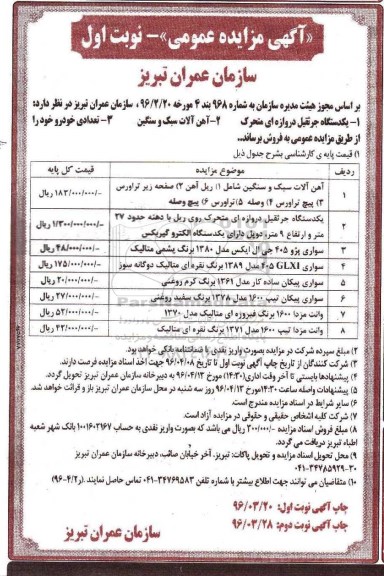 «آگهی مزایده عمومی»- نوبت اول
سازمان عمران تبریز
بر اساس مجوز هیئت مدیره سازمان به شماره ۹۶۸ بند ۴ مورخه ۹۶/۲/۲۰ ، سازمان عمران تبریز در نظر دارد:
۱- یکدستگاه جرثقیل دروازه ای متحرک ۲-آهن آلات سبک و سنگین ۳- تعدادی خودرو خود را
از طریق مزایده عمومی به فروش برساند.
۱) قیمت پایه ی کارشناسی بشرح جدول ذیل
ردیف موضوع مزایده قیمت کل پایه
۱ آهن آلات سبک و سنگین شامل ۱) ریل آهن ۲) صفحه زیر تراورس ۳) پیچ تراورس ۴) وصله ۵) تراورس ۶) پیچ وصله ۱۸۳/۰۰۰/۰۰۰/- ریال
۲ یکدستگاه جرثقیل دروازه ای متحرک روی ریل با دهنه حدود ۲۷ متر و ارتفاع ۹ متر دوپل دارای یکدستگاه الکترو گیربکس ۱/۳۰۰/۰۰۰/۰۰۰/- ریال
۳ سواری پژو ۴۰۵ جی ال ایکس مدل ۱۳۸۰ برنگ یشمی متالیک ۴۸/۰۰۰/۰۰۰/- ریال
۴ سواری GLXI ۴۰۵ مدل ۱۳۸۹ برنگ نقره ای متالیک دوگانه سوز ۱۷۵/۰۰۰/۰۰۰/- ریال
۵ سواری پیکان ساده کار مدل ۱۳۶۱ برنگ کرم روغنی ۲۰/۰۰۰/۰۰۰/- ریال
۶ سواری پیکان تیپ ۱۶۰۰ مدل ۱۳۷۸ برنگ سفید روغنی ۲۷/۰۰۰/۰۰۰/- ریال
۷ وانت مزدا ۱۶۰۰ برنگ فیروزه ای متالیک مدل ۱۳۷۰ ۵۲/۰۰۰/۰۰۰/- ریال
۸ وانت مزدا تیپ ۱۶۰۰ مدل ۱۳۷۱ برنگ نقره ای متالیک ۴۲/۰۰۰/۰۰۰/- ریال
۲) مبلغ سپرده شرکت در مزایده بصورت واریز نقدی یا ضمانتنامه بانکی خواهد بود.
۳) شرکت کنندگان از تاریخ چاپ آگهی نوبت اول تا تاریخ ۹۶/۰۴/۰۸ جهت اخذ اسناد مزایده فرصت دارند.
۴) پیشنهادها بایستی تا آخر وقت اداری(۱۴:۳۰) مورخ ۹۶/۰۴/۱۲ به دبیرخانه سازمان عمران تبریز تحویل گردد.
۵) پیشنهادات واصله ساعت ۱۴:۳۰مورخ ۹۶/۰۴/۱۳ روز سه شنبه در محل سازمان عمران تبریز باز و قرائت خواهد شد.
۶) سایر شرایط در اسناد مزایده مندرج است.
۷) شرکت کلیه اشخاص حقیقی و حقوقی در مزایده آزاد است.
۸) مبلغ فروش اسناد مزایده ۳۰۰/۰۰۰/- ریال می باشد که بصورت واریز نقدی به حساب ۱۰۰۱۶۰۲۱۶۷ بانک شهر شعبه
اطباء تبریز دریافت می گردد.
۹) محل تحویل اسناد مزایده و تحویل پاکات: تبریز، آخر خیابان صائب، دبیرخانه سازمان عمران تبریز
۰۴۱-۳۴۷۸۵۹۲۹-۳۰
۱۰) متقاضیان می توانند جهت اطلاع بیشتر با شماره تلفن ۳۴۷۶۹۵۸۳-۰۴۱ تماس حاصل نمایند.
چاپ آگهی نوبت اول: ۹۶/۰۳/۲۰
چاپ آگهی نوبت دوم: ۹۶/۰۳/۲۸
سازمان عمران تبریز